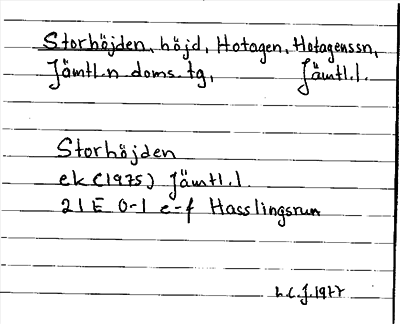 Storhöjden, höjd, Hotagen, Hotagenssn,
Jämtl.n doms.tg, Jämtl.l.
Storhöjden
ek (1975) Jämtl.l
21E 0-1 e-f Hasslingsrun
L.C.J.1977